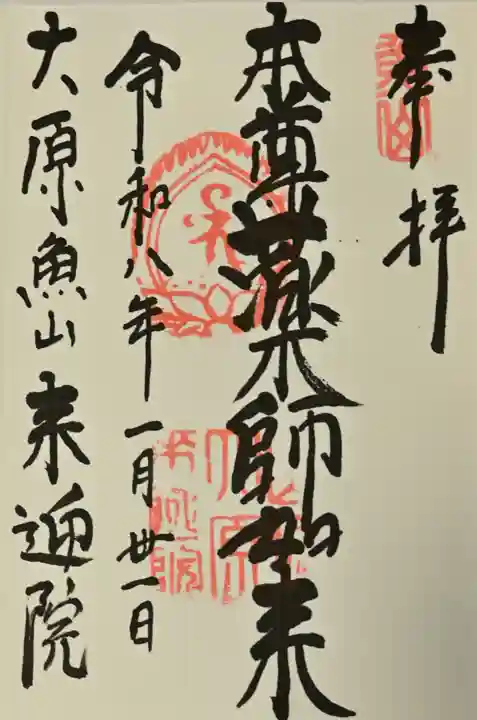 奉拝
本尊薬師如来
令和八年一月卅一日
大原魚山来迎院